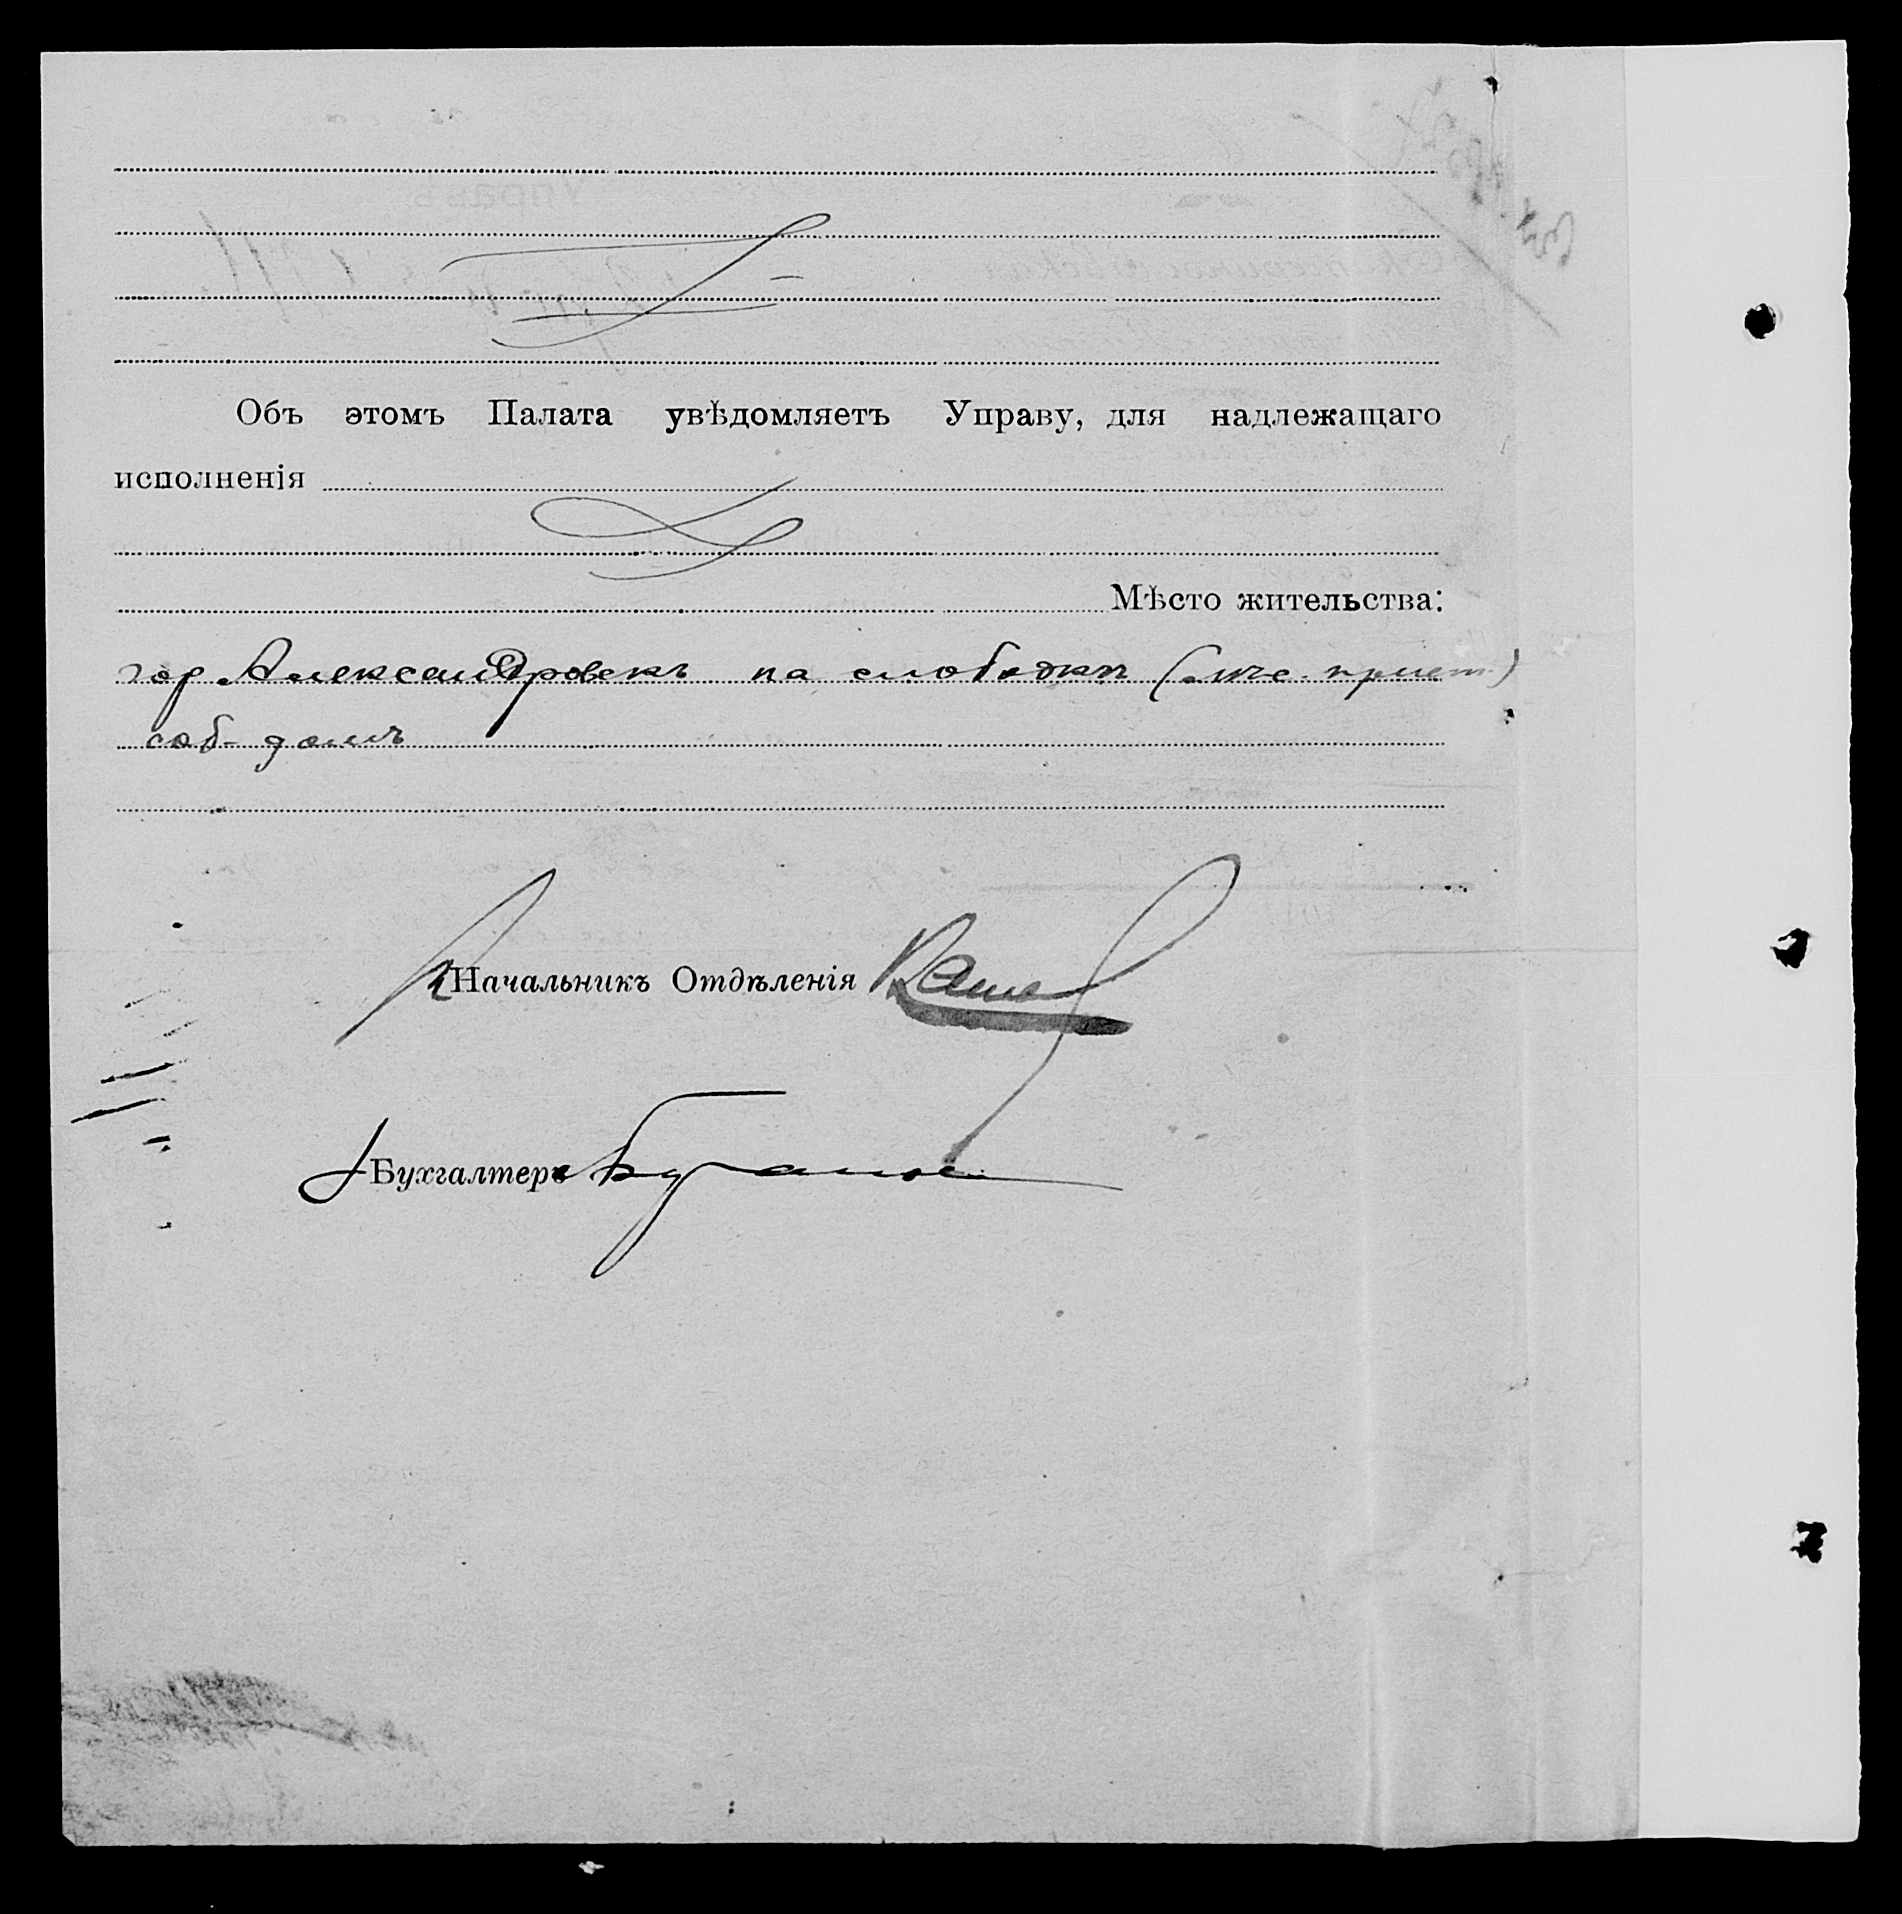 Объ этомъ Палата увѣдомляетъ Управу, для надлежащаго
исполненія
Мѣсто жительства:
гор. Александровскъ на слободкѣ
соб. домъ
Начальникъ Отдѣленія
Бухгалтеръ